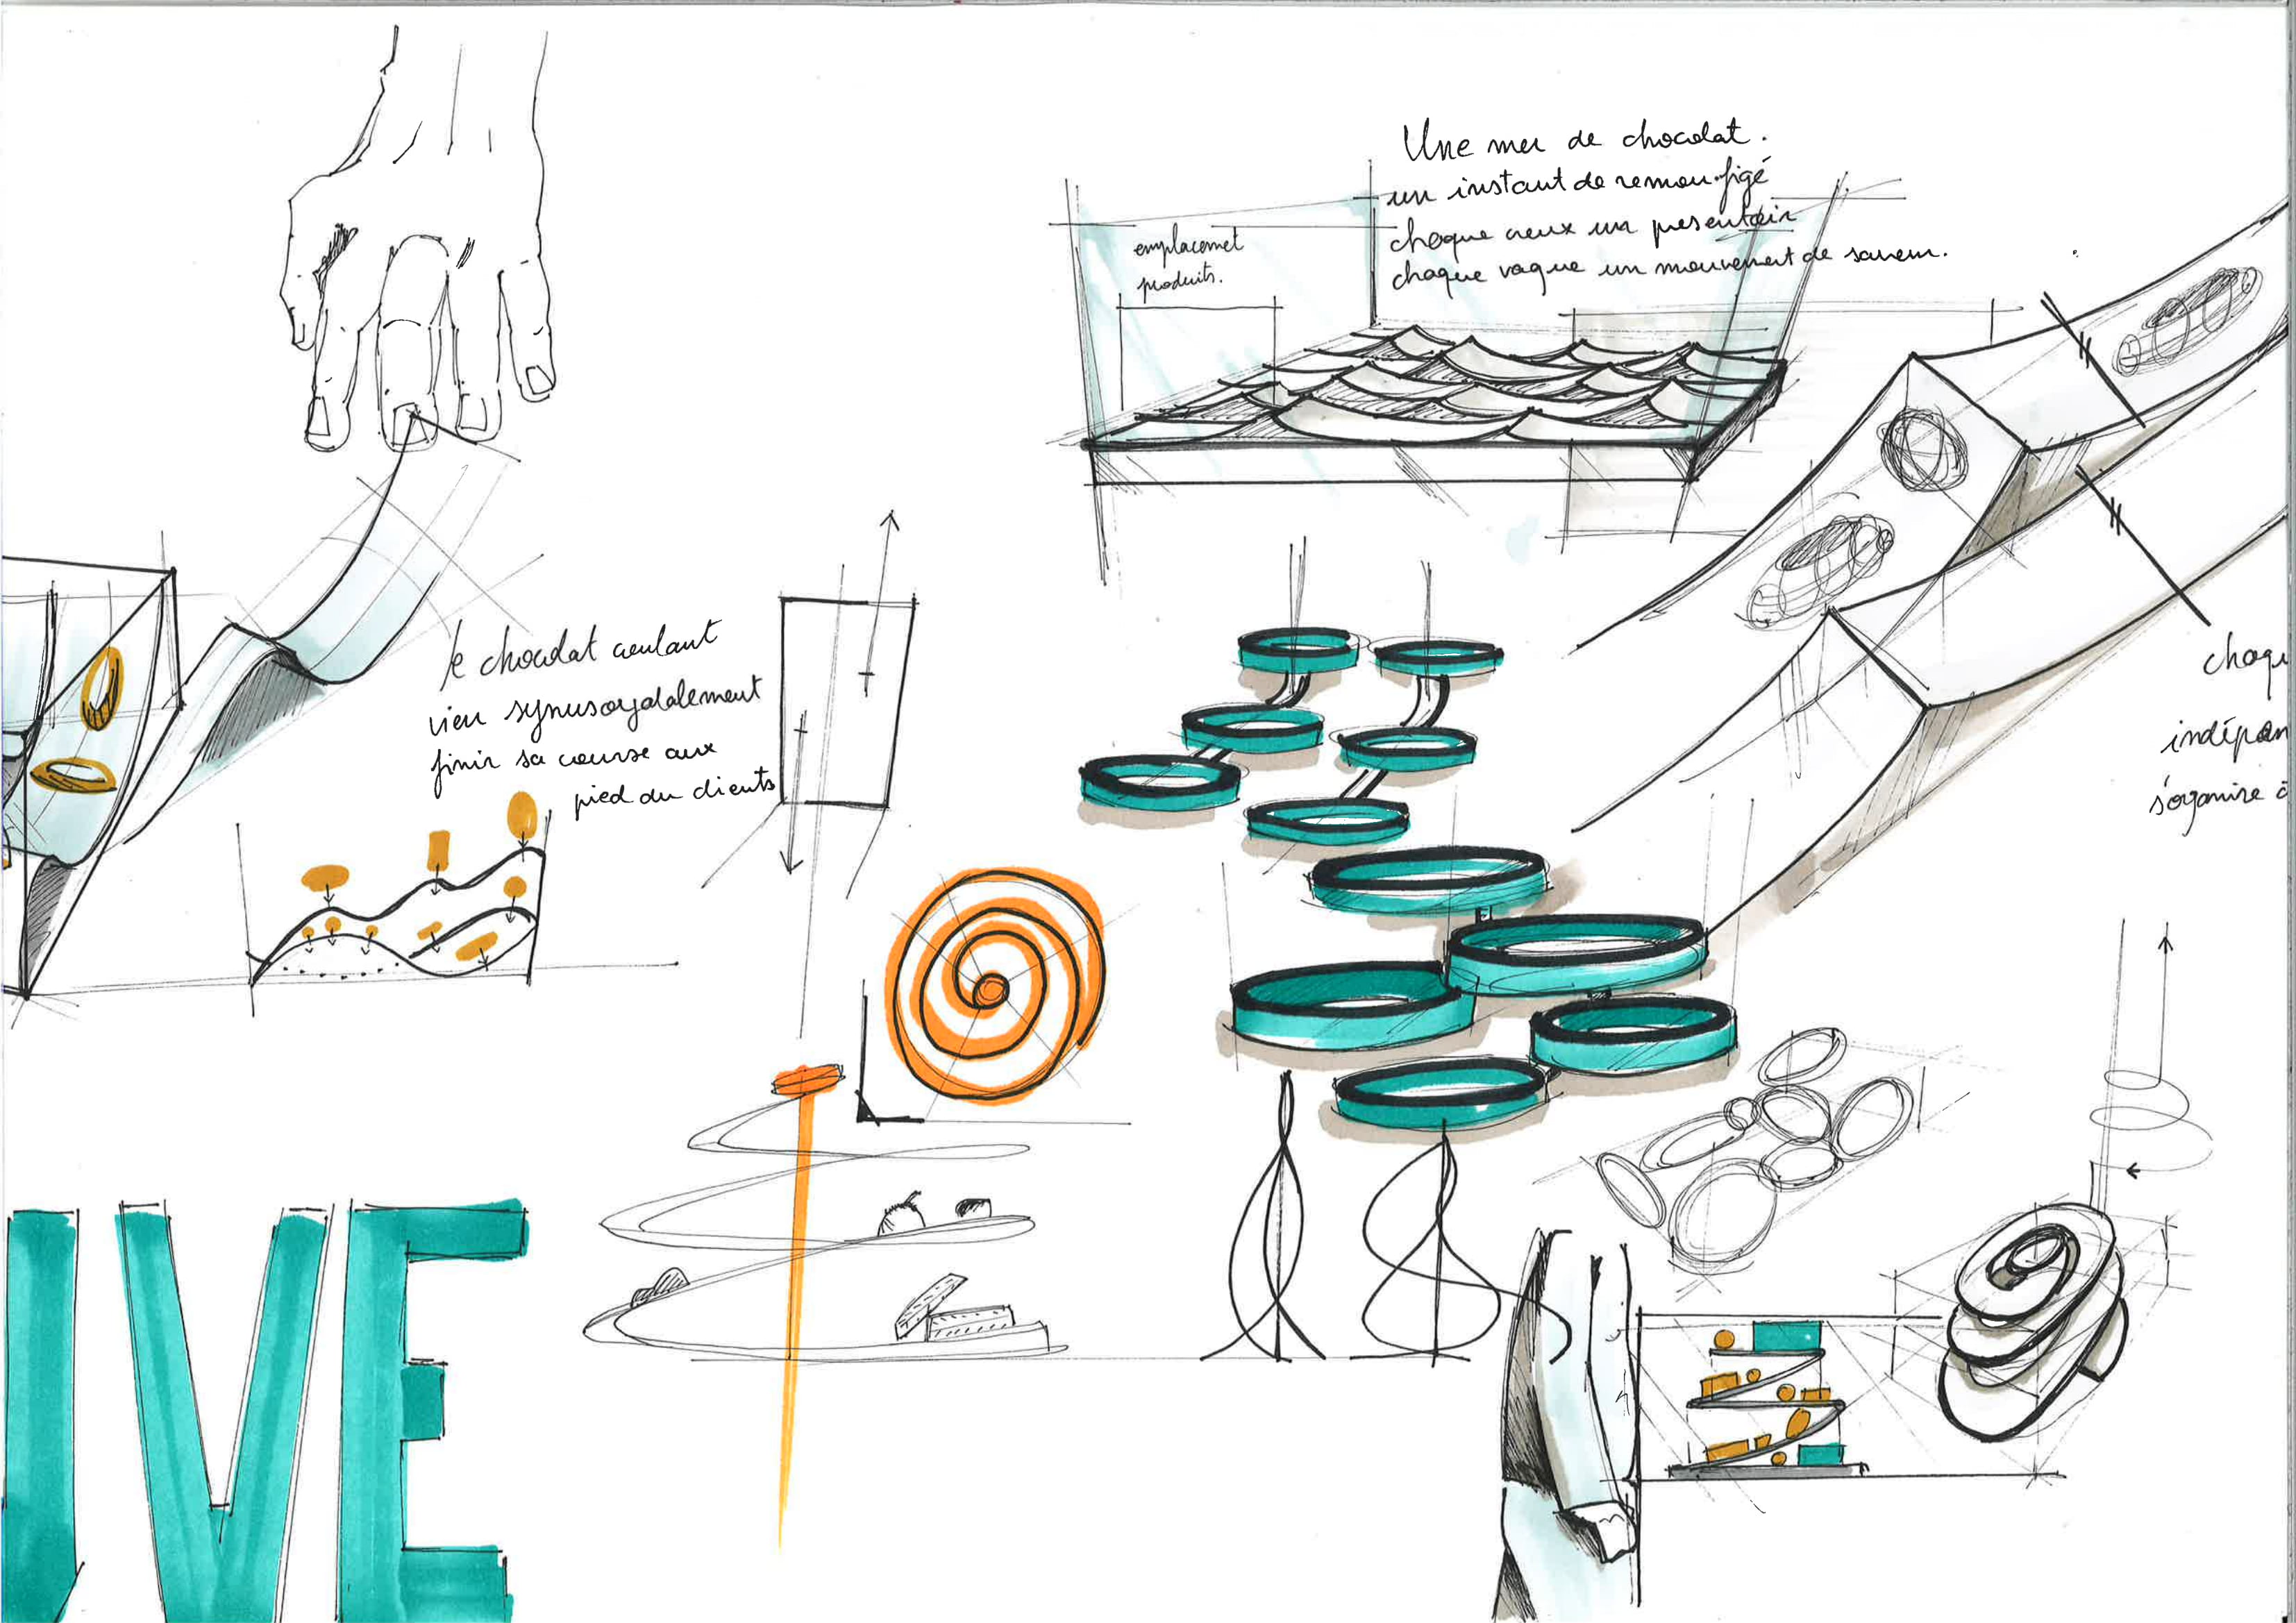 Une mer de chocolat.
un instant de remou figé
chaque creux un presentoir
chaque vague un mouvement de saveur.
emplacemet
produits.
le chocolat coulant
vien synusoydalement
finir sa course aux
pied du clients
chaqu
indépan
s'organise à
UVE